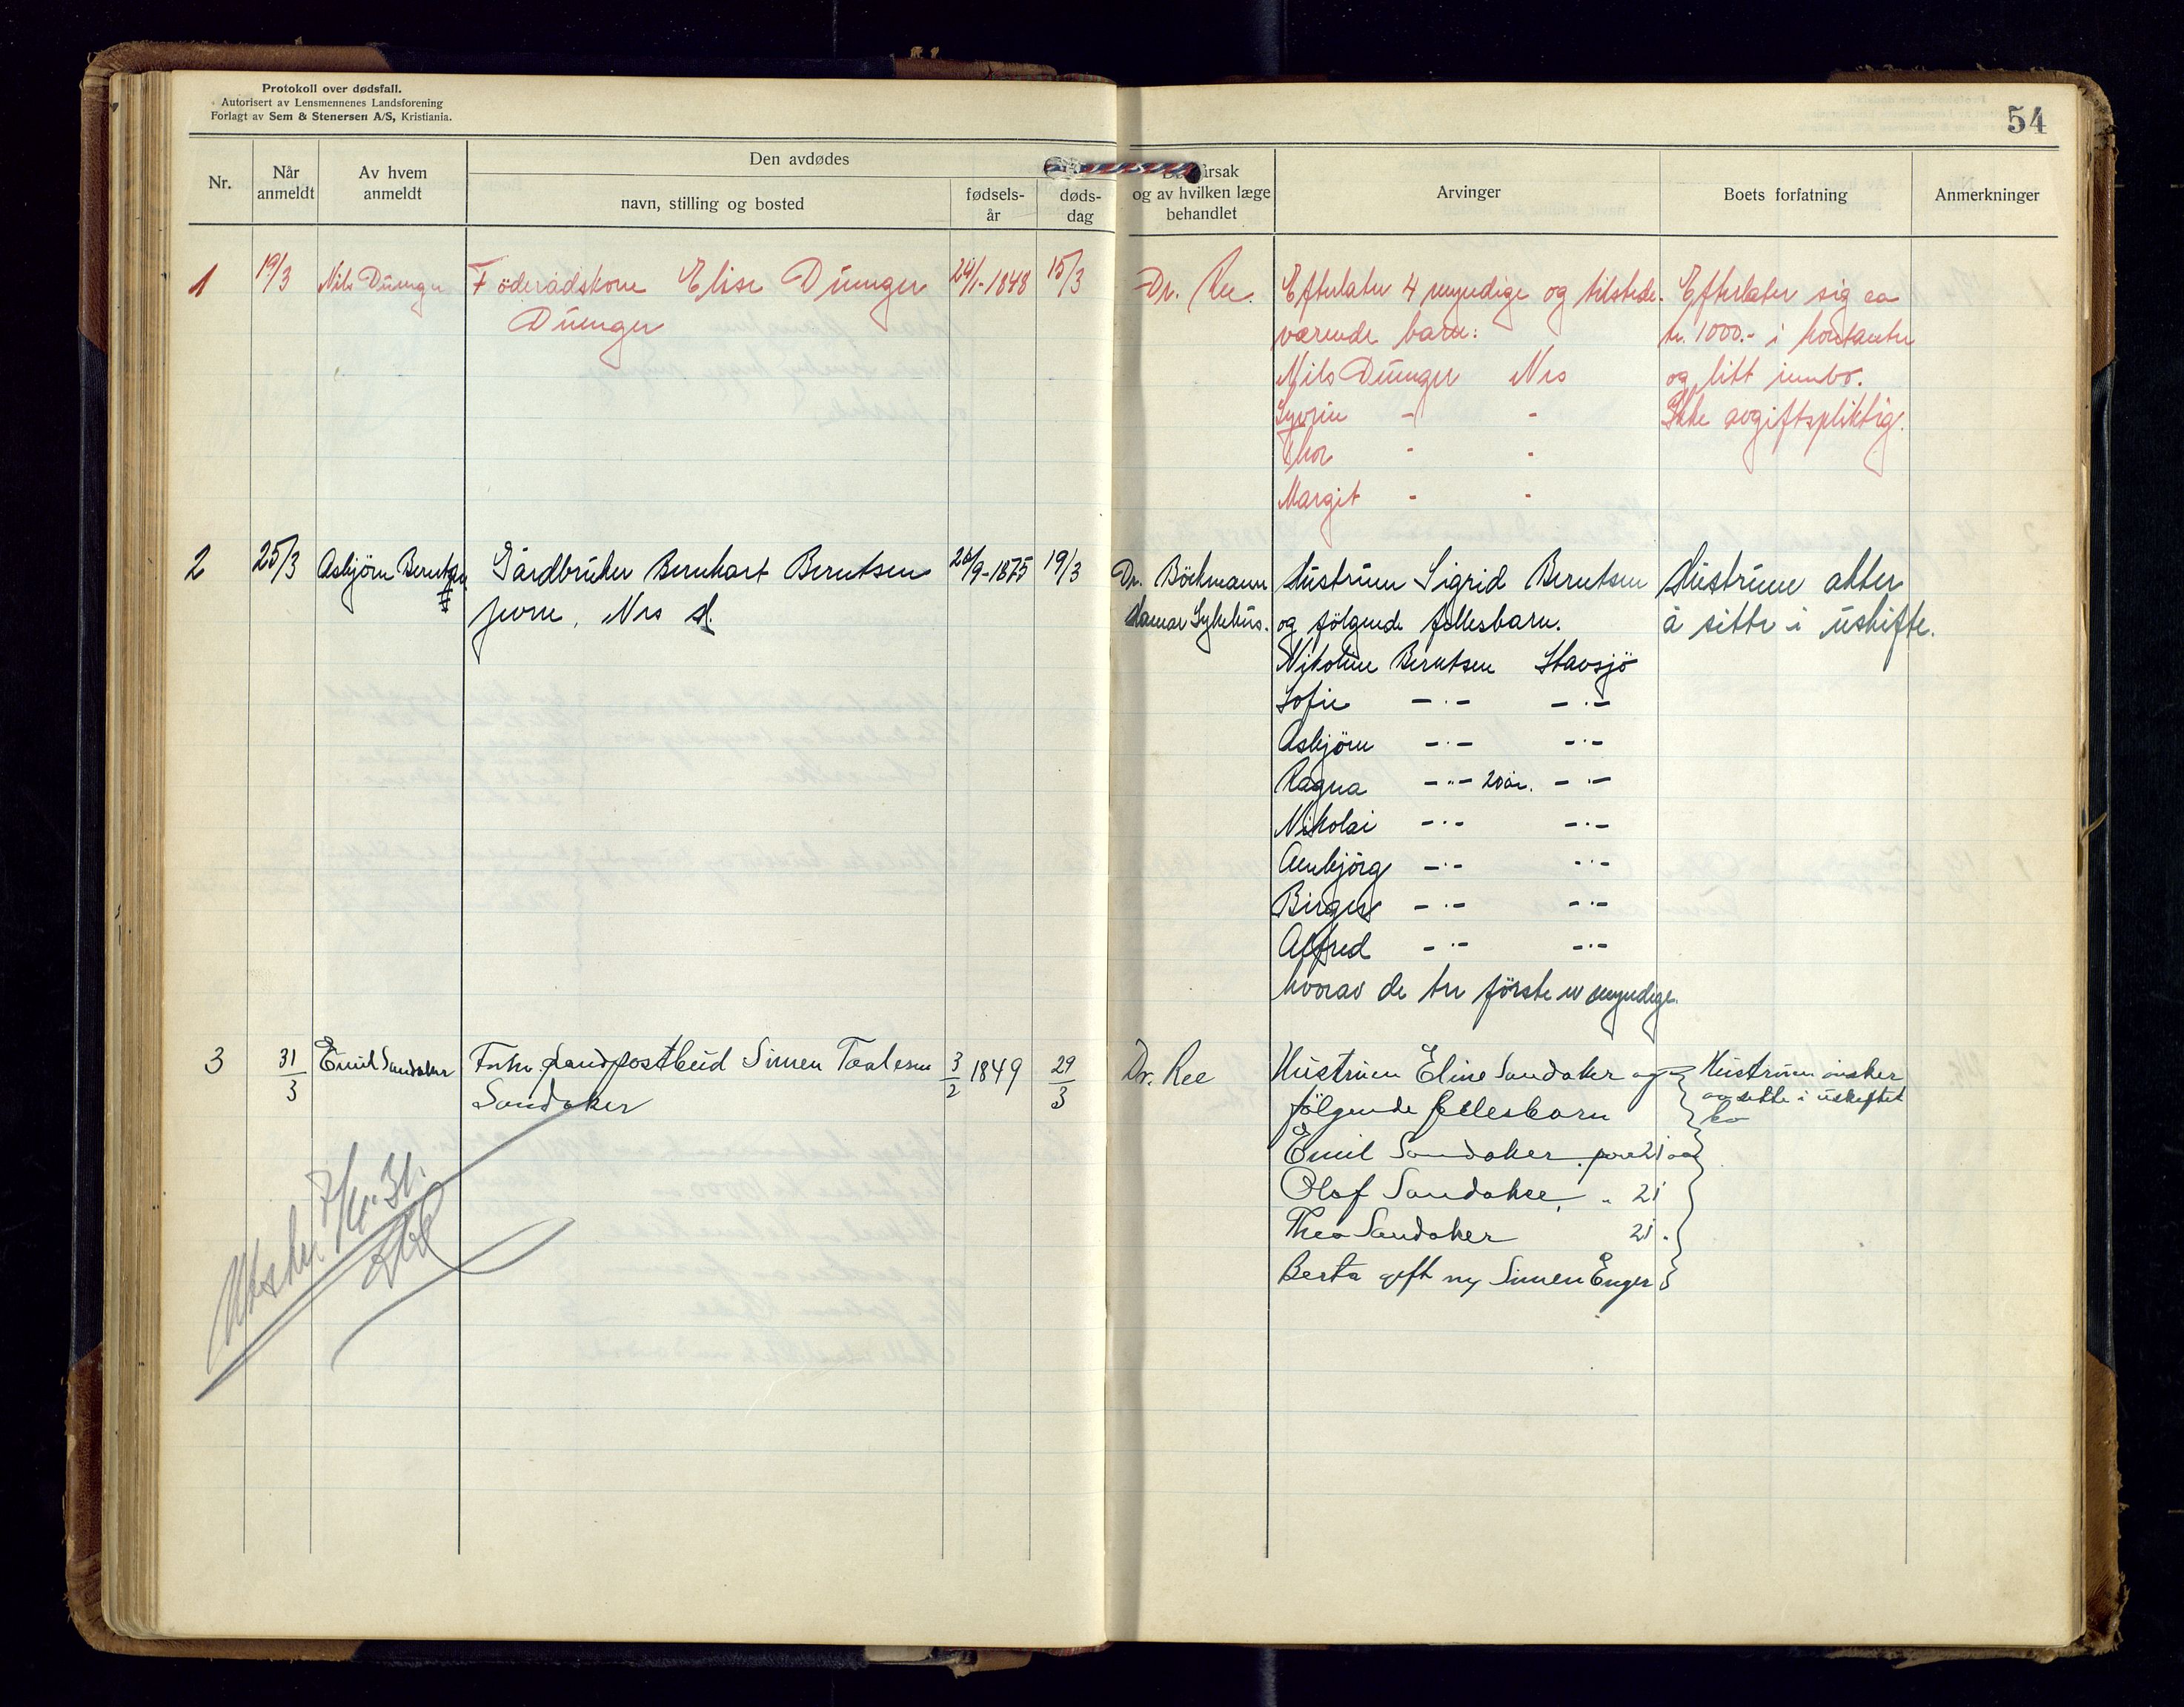 Protokoll over dødsfall.
Autorisert av Lensmennenes Landsforening
Forlagt av Sem & Stenersen A/S, Kristiania.
54
Nr.
Når anmeldt
Av hvem anmeldt
Den avdødes
navn, stilling og bosted
fødsels-år
døds-dag
og av hvilken læge behandlet
Arvinger
Boets forfatning
Anmerkninger
1 19/3 Nils Düenger Föderådskone Elise Düenger 24/1-1848 15/3 Dr. Ree.
Düenger
Efterlater 4 myndige og tilstede-
værende barn:
Nils Düenger Nes
Syverin - -
Thor - -
Margit - -
Efterlater sig ca
kr. 1000.- i kontanter
og litt innbo.
Ikke avgiftspliktig.
2 25/3 Asbjörn Berntsen Gårdbruker Bernhart Berntsen 19/3 Dr. Böckmann
Nes H. Hamar Sykehus.
Hustruen Sigrid Berntsen
og fölgende fellesbarn.
Nikoline Berntsen Stavsjö
Sofie -·- -·-
Asbjörn -·- -·-
Ragna -·- 20 år. -·-
Nikolai -·- -·-
Arnbjörg -·- -·-
Birger -·- -·-
Alfred -·- -·-
hvorav de tre förste er myndige.
Hustruen akter
å sitte i uskifte.
3 31/3 Emil Sandaker Forhv. Landpostbud Simen Taalesen 3/2 1849 29/3 Dr. Ree
Sandaker
Hustruen Eline Sandaker og
fölgende fellesbarn
Emil Sandaker over 21 aar
Olaf Sandaker " 21
Thea Sandaker 21 "
Berta gift m/ Simen Enger
Hustruen önsker
aa sitte i uskiftet
bo